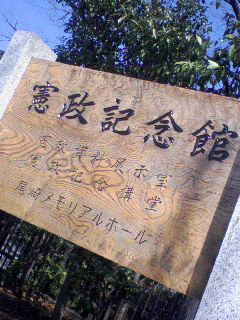 憲政記念館
憲政資料展示室
憲政記念講堂
尾崎メモリアルホール